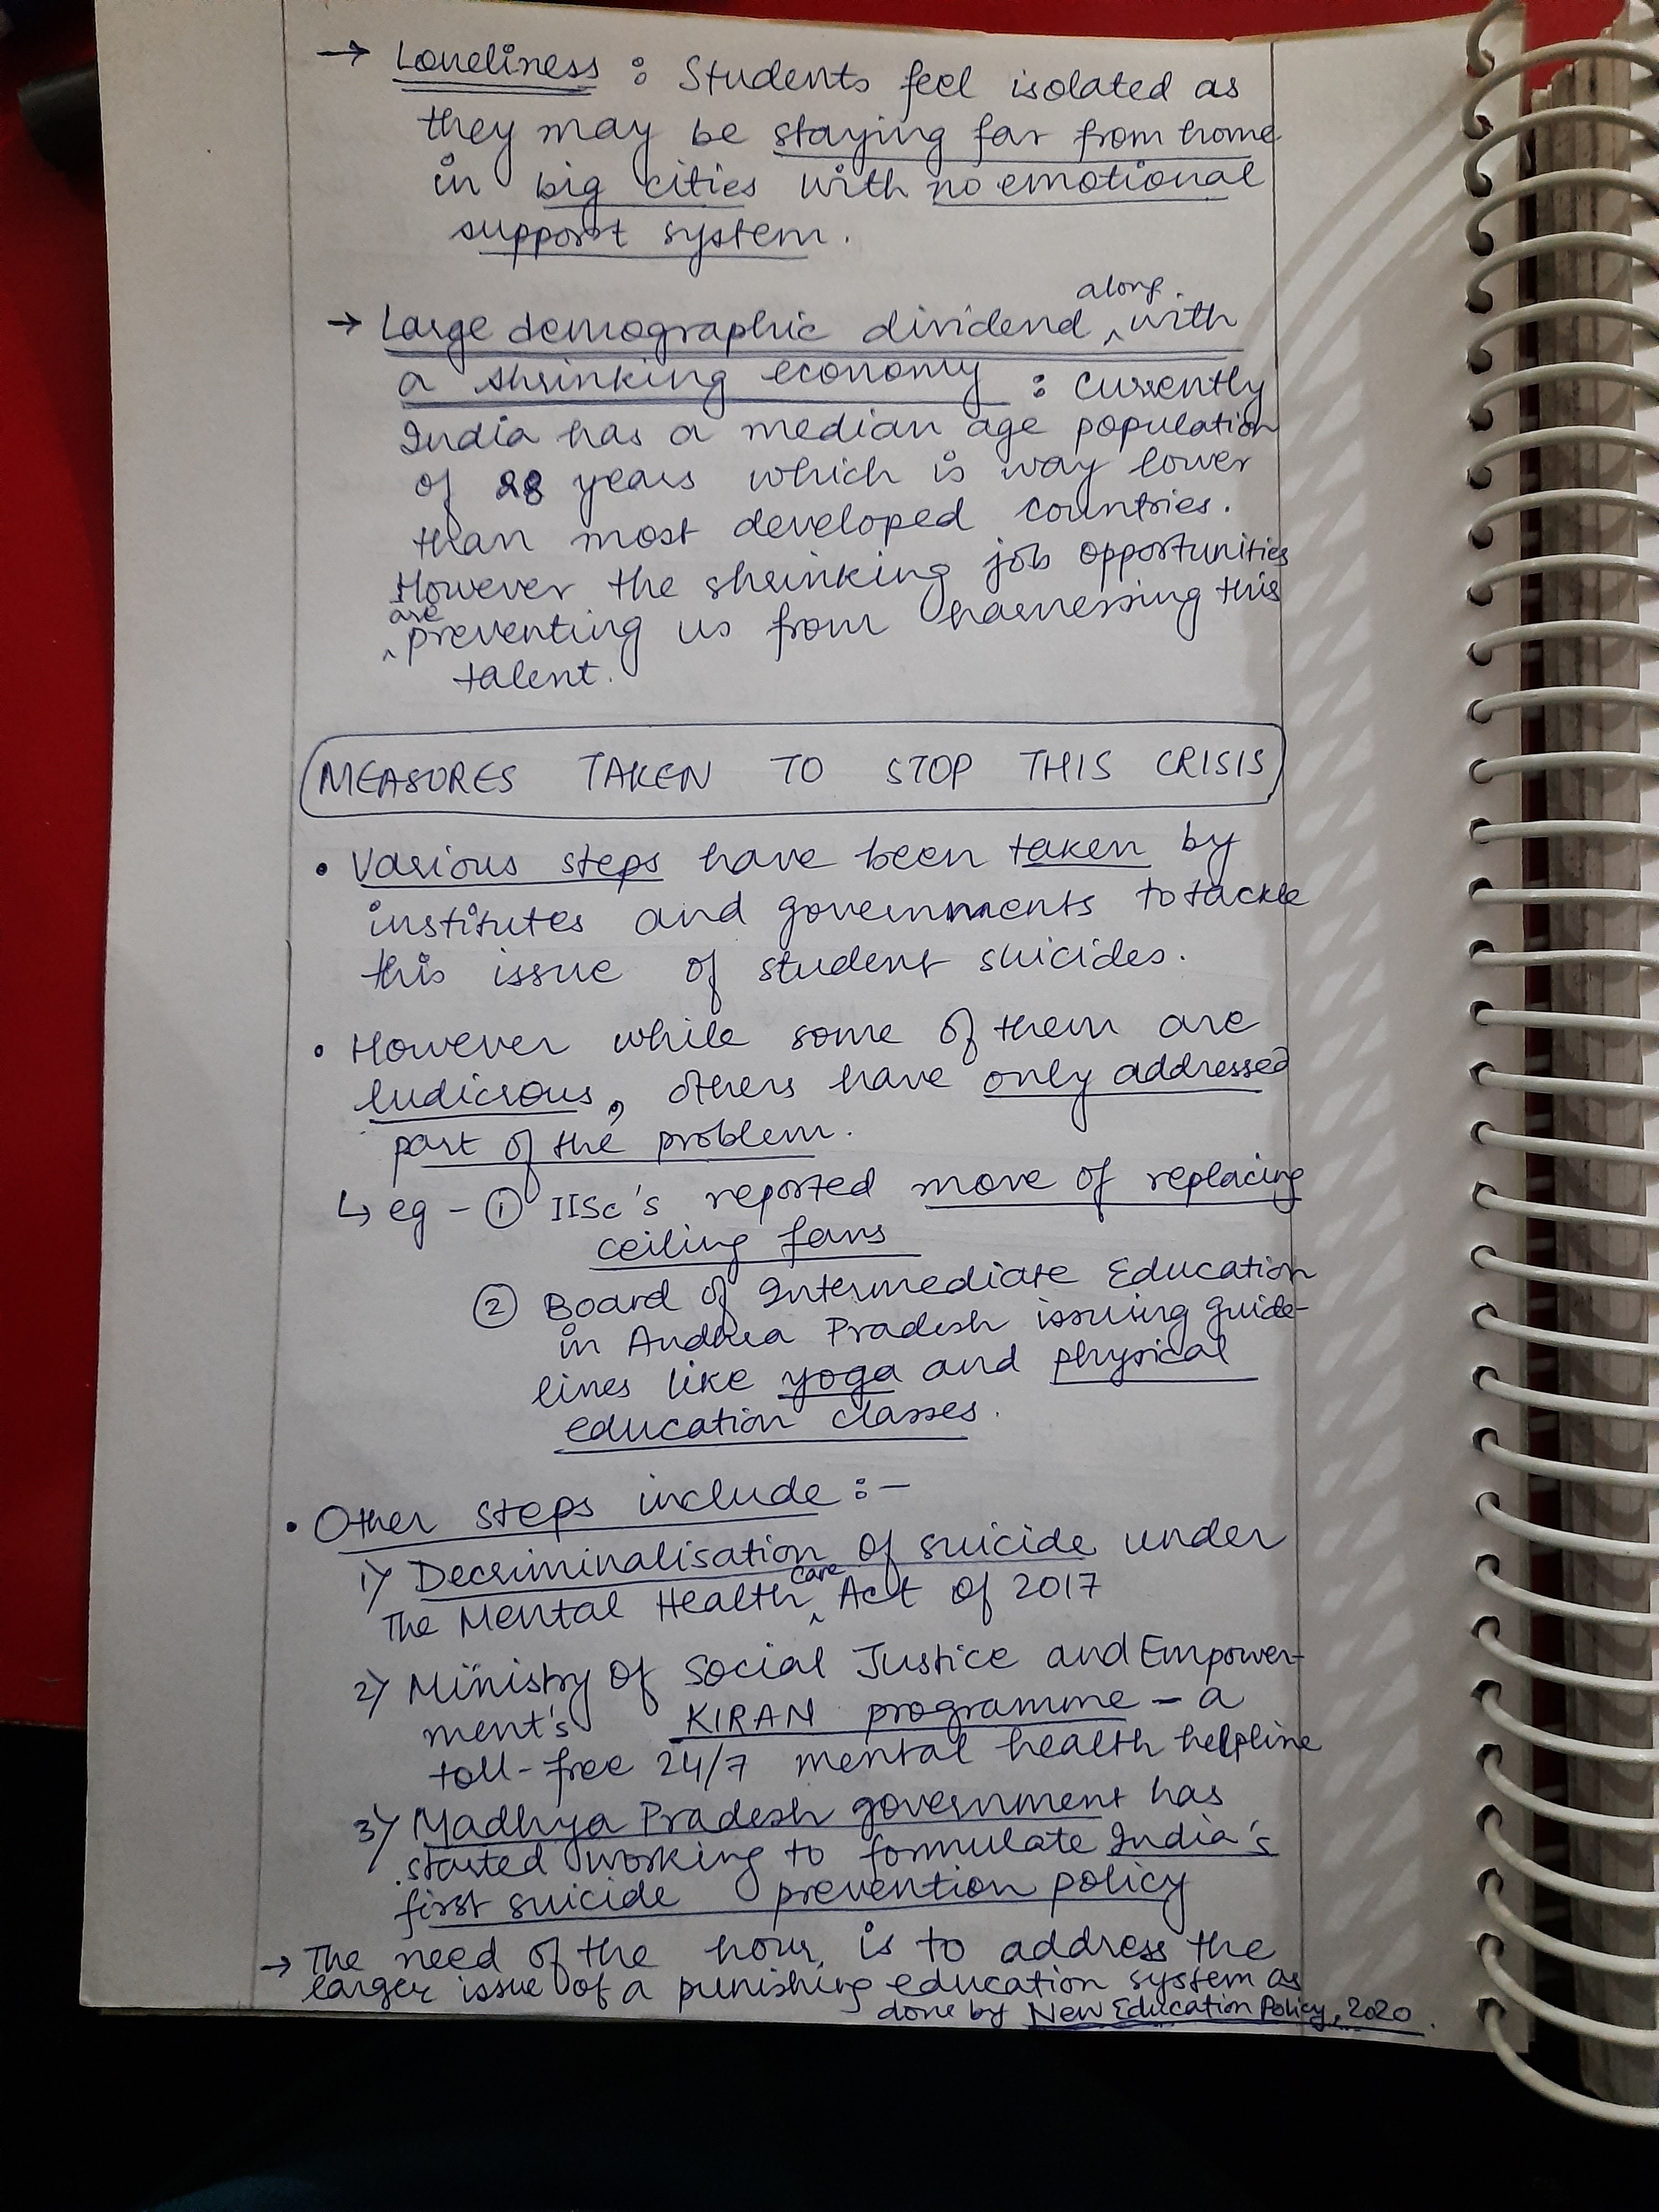 → Loneliness : Students feel isolated as
they may be staying far from home
in big cities with no emotional
support system.
→ Large demographic dividend along with
a shrinking economy : Currently
India has a median age population
of 28 years which is way lower
than most developed countries.
However the shrinking job opportunities
are preventing us from harnessing this
talent.
MEASURES TAKEN TO STOP THIS CRISIS
• Various steps have been taken by
institutes and governments to tackle
this issue of student suicides.
• However while some of them are
ludicrous, others have only addressed
part of the problem.
↳ eg - ① IISc's reported move of replacing
ceiling fans
② Board of Intermediate Education
in Andhra Pradesh issuing guide-
lines like yoga and physical
education classes.
• Other steps include :-
1) Decriminalisation of suicide under
The Mental Health care Act of 2017
2) Ministry of Social Justice and Empower-
ment's KIRAN programme - a
toll-free 24/7 mental health helpline
3) Madhya Pradesh government has
started working to formulate India's
first suicide prevention policy
→ The need of the hour is to address the
larger issue of a punishing education system as
done by New Education Policy, 2020.